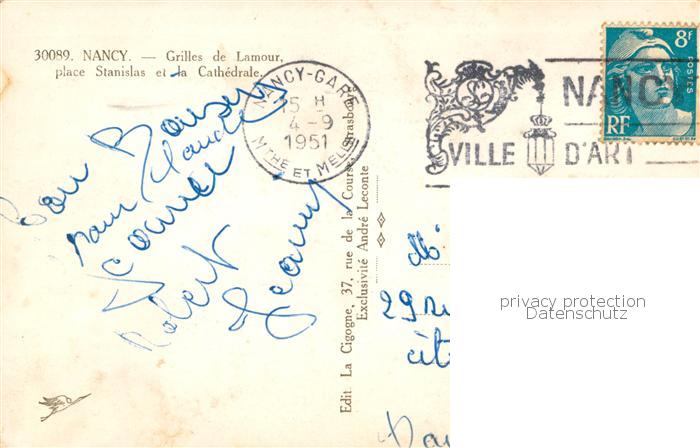 30089. NANCY. — Grilles de Lamour,
place Stanislas et la Cathédrale.
NANCY-GARE
15 H
4-9
1951
MTHE ET MELLE
NANCY
VILLE D'ART
8F
POSTES
RF
Bon Baiser
Claude
Robert
Edit. La Cigogne, 37, rue de la Course, Strasbourg
Exclusivité André Leconte
29
privacy protection
Datenschutz